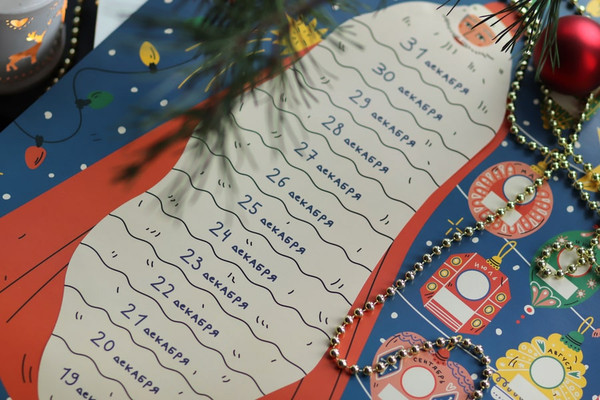 31 декабря
30 декабря
29 декабря
28 декабря
27 декабря
26 декабря
25 декабря
24 декабря
23 декабря
22 декабря
21 декабря
20 декабря
19 декабря
июль
сентябрь
август